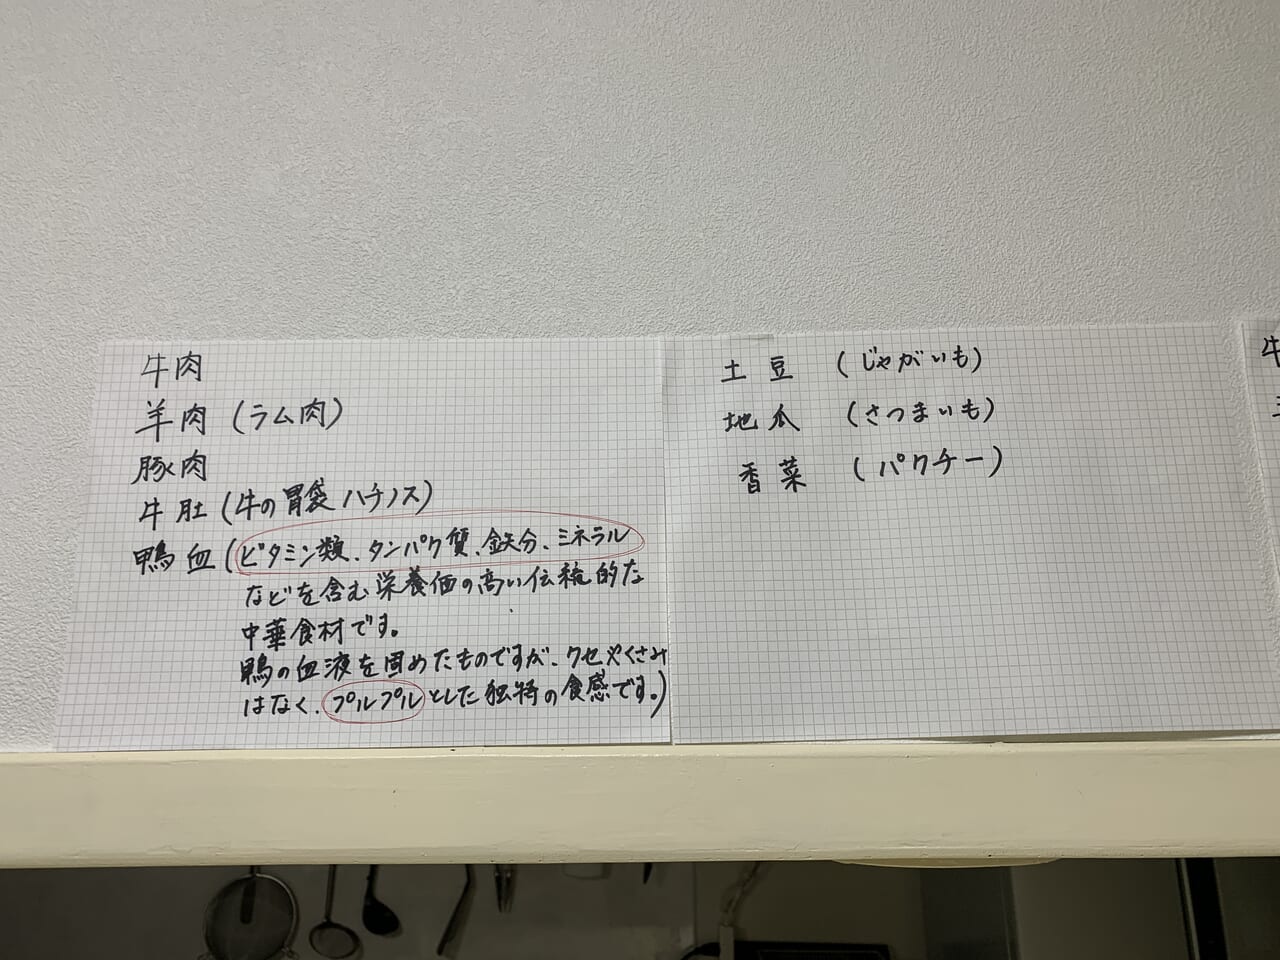 牛肉
羊肉(ラム肉)
豚肉
牛肚(牛の胃袋 ハチノス)
鴨血(ビタミン類、タンパク質、鉄分、ミネラル
などを含む栄養価の高い伝統的な
中華食材です。
鴨の血液を固めたものですが、クセやくさみ
はなく、プルプルとした独特の食感です。)
土豆 (じゃがいも)
地瓜 (さつまいも)
香菜 (パクチー)
牛